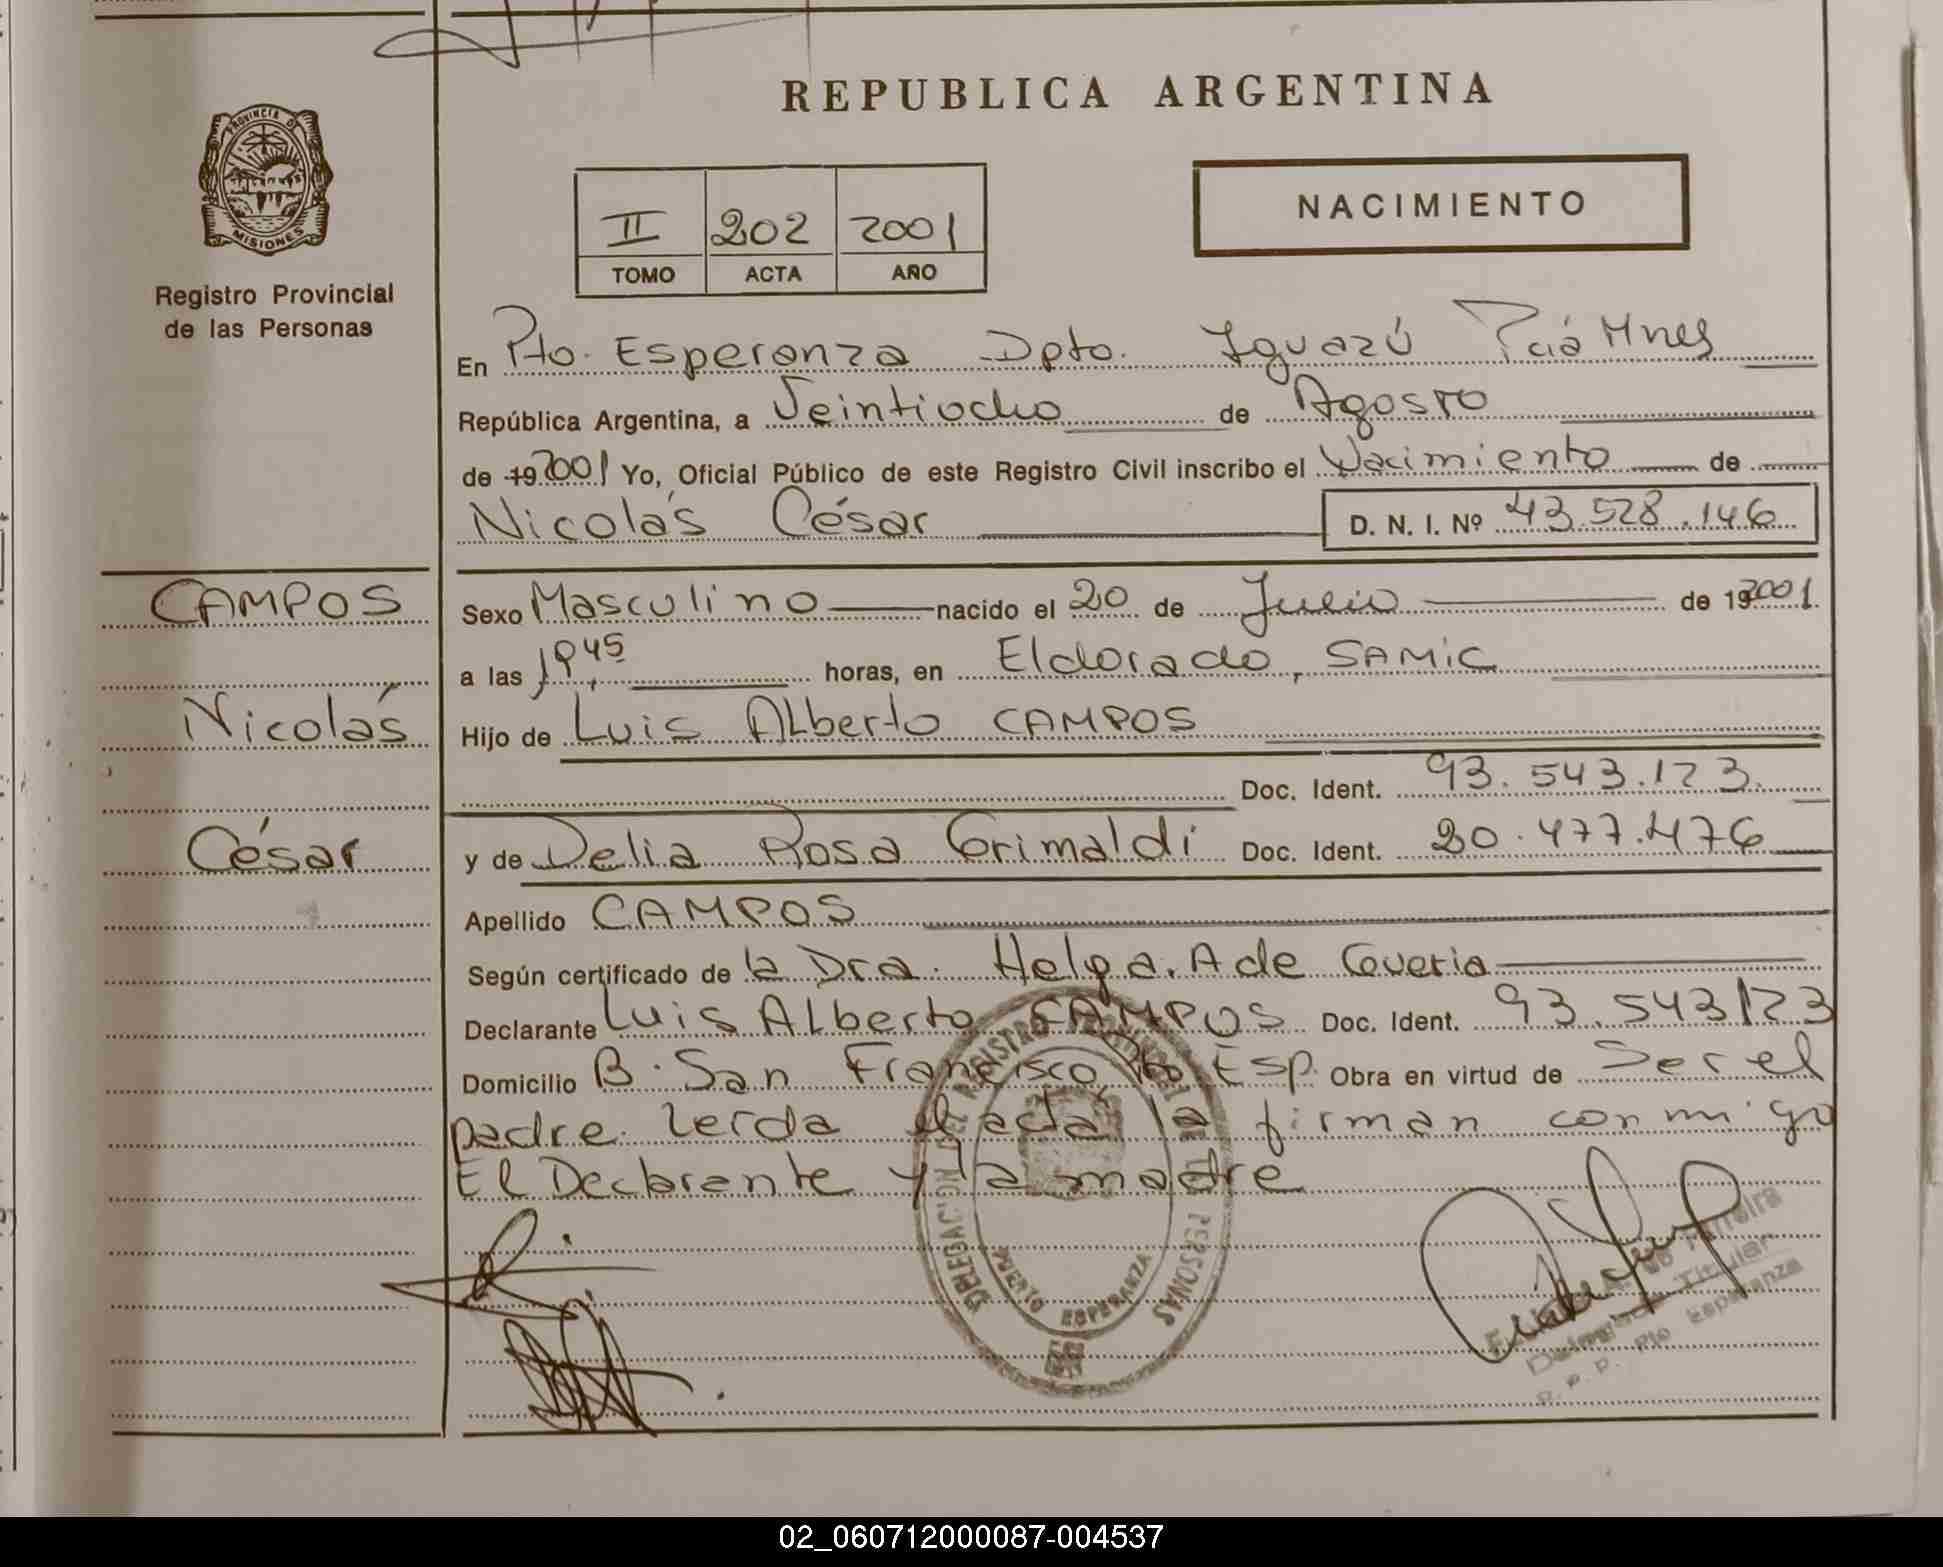 REPUBLICA ARGENTINA
PROVINCIA DE
MISIONES
Registro Provincial
de las Personas
II 202 2001
TOMO ACTA AÑO
NACIMIENTO
En Pto. Esperanza Dpto. Iguazú Pciá Mnes
República Argentina, a Veintiocho de Agosto
de 19 2001 Yo, Oficial Público de este Registro Civil inscribo el Nacimiento de
Nicolás César D. N. I. Nº 43.528.146
CAMPOS
Nicolás
César
Sexo Masculino nacido el 20 de Julio de 19 2001
a las horas, en Eldorado, SAMIC
Hijo de Luis Alberto CAMPOS
Doc. Ident. 93.543.123.
y de Delia Rosa Grimaldi Doc. Ident. 20.477.476
Apellido CAMPOS
Según certificado de la Dra. Helga. A de
Declarante Luis Alberto CAMPOS Doc. Ident. 93.543123
Domicilio B. San Francisco Pto Esp. Obra en virtud de Ser el
padre. Leida el acta la firman conmigo
El Declarante y la madre
DELEGACION DEL REGISTRO PROVINCIAL DE LAS PERSONAS
PUERTO ESPERANZA
Ferreira
Titular
R. P. P. Pto Esperanza
02_060712000087-004537